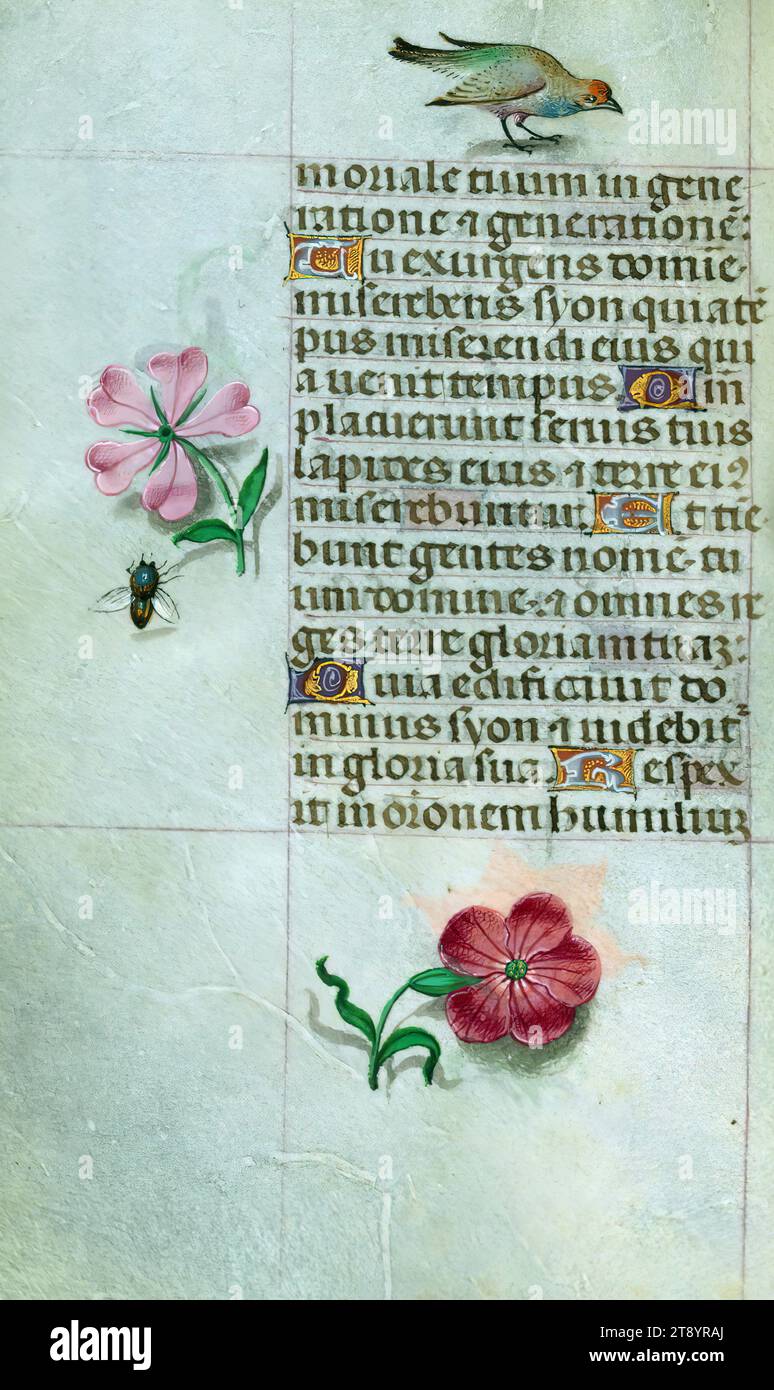 moriale tuum in gene
ratione ⁊ generationē:
Tu exurgens domine
misereberis syon quia tē
pus miserendi eius qui
a uenit tempus. Qm̄
placuerunt seruis tuis
lapides eius ⁊ terre eiꝰ
miserebuntur. Et tie
bunt gentes nomē tu
um domine ⁊ omnes re
ges terre gloriam tuaȝ:
Quia edificauit do
minus syon ⁊ uidebit᷑
in gloria sua. Respex
it in or̄onem humiliuȝ
alamy
alamy
alamy
a
a
a
a
alamy
Image ID: 2T8YRAJ
www.alamy.com